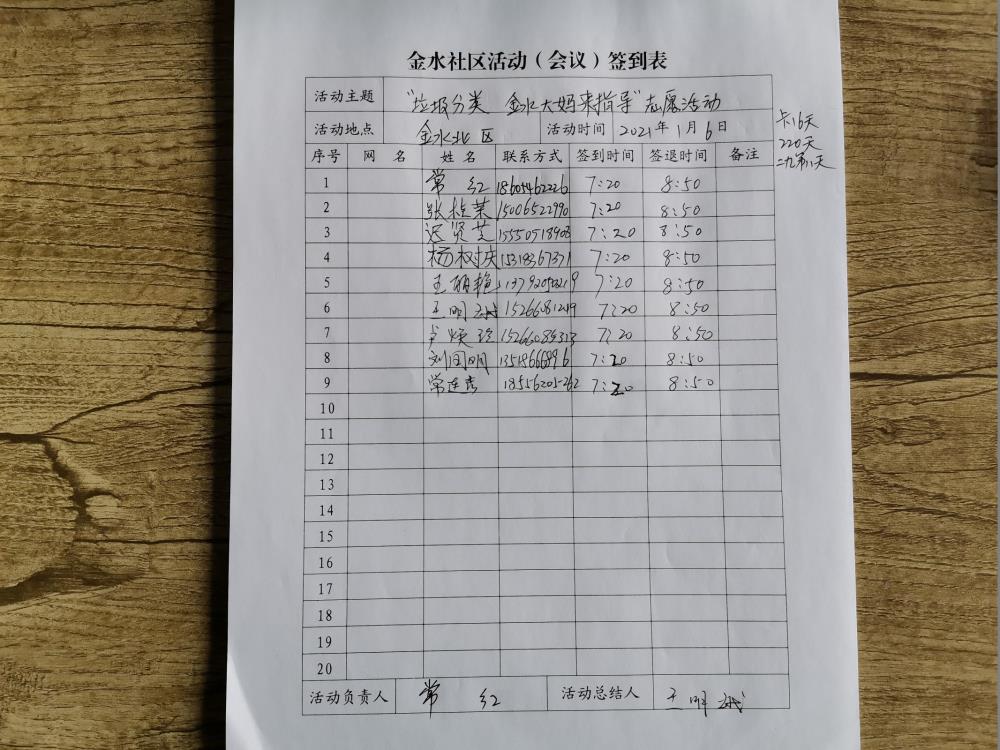 金水社区活动（会议）签到表
活动主题 “垃圾分类 金水大妈来指导”志愿活动
活动地点 金水北区 活动时间 2021年1月6日
卡16天
220天
二九第1天
序号 网 名 姓 名 联系方式 签到时间 签退时间 备注
1 常 红 18605462226 7:20 8:50
2 张桂荣 15006522990 7:20 8:50
3 迟贤芝 15550918908 7:20 8:50
4 杨树庆 15318367371 7:20 8:50
5 王丽艳 13792050219 7:20 8:50
6 王明 15266081249 7:20 8:50
7 卢焕珍 15266085313 7:20 8:50
8 刘国明 13518666896 7:20 8:50
9 常莲秀 18556205262 7:20 8:50
10
11
12
13
14
15
16
17
18
19
20
活动负责人 常 红 活动总结人 王明